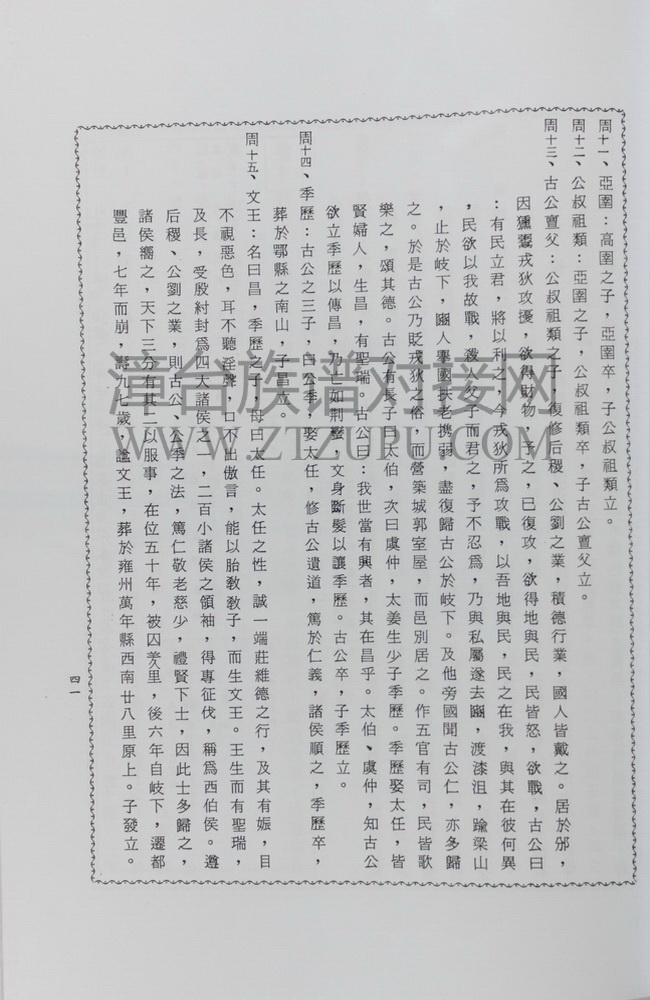 周十一、亞圉：高圉之子，亞圉卒，子公叔祖類立。
周十二、公叔祖類：亞圉之子，公叔祖類卒，子古公亶父立。
周十三、古公亶父：公叔祖類之子，復修后稷、公劉之業，積德行業，國人皆戴之。居於邠，
因獯鬻戎狄攻擾，欲得財物，予之，已復攻，欲得地與民，民皆怒，欲戰，古公曰
：有民立君，將以利之，今戎狄所為攻戰，以吾地與民，民之在我，與其在彼何異
，民欲以我故戰，殺人父子而君之，予不忍為，乃與私屬遂去豳，渡漆沮，踰梁山
，止於岐下，豳人舉國扶老携弱，盡復歸古公於岐下。及他旁國聞古公仁，亦多歸
之。於是古公乃貶戎狄之俗，而營築城郭室屋，而邑別居之。作五官有司，民皆歌
樂之，頌其德。古公有長子曰太伯，次曰虞仲，太姜生少子季歷。季歷娶太任，皆
賢婦人，生昌，有聖瑞，古公曰：我世當有興者，其在昌乎。太伯、虞仲，知古公
欲立季歷以傳昌，乃亡如荆蠻，文身斷髮以讓季歷。古公卒，子季歷立。
周十四、季歷：古公之三子，曰公季，娶太任，修古公遺道，篤於仁義，諸侯順之，季歷卒，
葬於鄂縣之南山，子昌立。
周十五、文王：名曰昌，季歷之子，母曰太任。太任之性，誠一端莊維德之行，及其有娠，目
不視惡色，耳不聽淫聲，口不出傲言，能以胎教教子，而生文王。王生而有聖瑞，
及長，受殷紂封為四大諸侯之一，二百小諸侯之領袖，得專征伐，稱為西伯侯。遵
后稷、公劉之業，則古公、公季之法，篤仁敬老慈少，禮賢下士，因此士多歸之，
諸侯嚮之，天下三分有其二以服事，在位五十年，被囚羑里，後六年自岐下，遷都
豐邑，七年而崩，壽九七歲，謚文王，葬於雍州萬年縣西南廿八里原上。子發立。
四一
漳台族谱对接网
WWW.ZTZUPU.COM